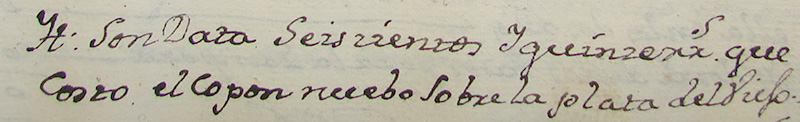 Yt: Son Data Seiszientos Y quinze rr.s que
Costo el Copon nuebo Sobre la plata del Viejo.